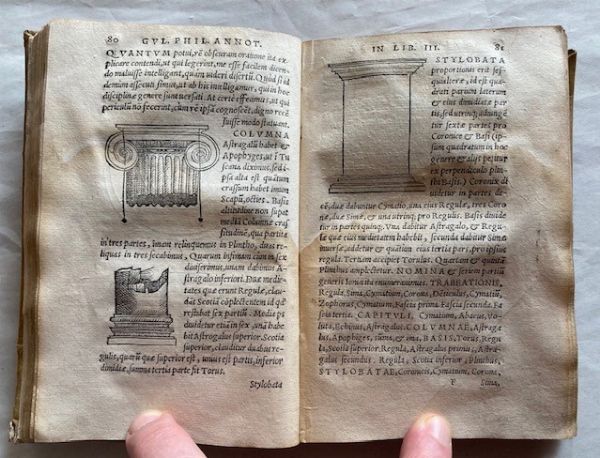 80 GVL. PHIL. ANNOT.
QVANTVM potui, ré obscuram oratione ita ex
plicare contendi, ut qui legerint, me esse facilem dicen
do maluisse intelligant, quam uideri disertū. Quid si id
demum assecuti simus, ut ab his intelligamur, qui in hoc
disciplinæ genere sunt uersati. At certè effecimus, ut qui
periculū no fecerint, cùm rē ipsā cognoscēt, digno rem
suisse modo statuant.
COLVMNA
Astragalū habet et
Apophyges, ut ī Tu
scana diximus, sed i-
psa alta est quātum
crassum habet imum
Scapū, octies. Basis
altitudine non supat
mediā Columnæ craf
situdinē, quæ partita
in tres partes, imam relinquemus in Plintho, duas re
liquas in tres secabimus, Quarum infimam cùm in sex
diuiserimus, unam dabimus A-
stragalo inferiori. Duæ medie
tates quæ erunt Regulæ, clau
dāt Scotiā cōplectentem id qd
restabat sex partiū. Media ps
diuidetur etiā in sex, unā habe
bit Astrogalus superior. Scotia
superior, clauditur duabus re-
gulis, quarū quæ superior est, unius est partis, inferior
dimidiæ, summa tertia parte fit Torus.
Stylobata
IN LIB. III. 81
STYLOBATA
proportionis erit ses-
quialteræ, id est qua-
drati parum laterum
& eius dimidiatæ par
tis, sed utrinq; adiungē
tur sextæ partes pro
Coronice & Basi (ipsum
quadratum in hoc
genere & alijs petitur
ex perpendiculo plin-
thi Basis.) Coronix di
uidetur in partes de-
cē, duæ dabuntur Cymatio, una eius Regulæ, tres Coro
næ, duæ Simæ, & una utrinq; pro Regulis. Basis diuide
tur in partes quinq;. Vna dabitur Astragalo, & Regu-
læ quæ eius medietatem habebit, secunda dabitur Simæ
inuersæ, addetur & quātum eius tertia pars, pro ipsius
regula. Tertiam accipiet Torulus. Quartam & quintā
Plinthus amplectetur. NOMINA & seriem partiū
generis Ionici ita enumerauimus. TRABEATIONIS,
Regula, Sima, Cymatium, Corona, Dēticulus, Cymatiū,
Zophorus, Cymatium, Fascia prima Fascia secunda, Fa
scia tertia. CAPITVLI, Cymatium, Abacus, Vo-
luta, Echinus, Astragalus. COLVMNAE, Astra-
galus, Apophiges, suma, & ima, BASIS, Torus, Regu
la, Scotia superior. Regula, Astragalus primus, Astra-
galus secundus. Regula, Scotia inferior, Plinthus,
STYLOBATAE, Coronicis, Cymatium, Corona,
F Sima,